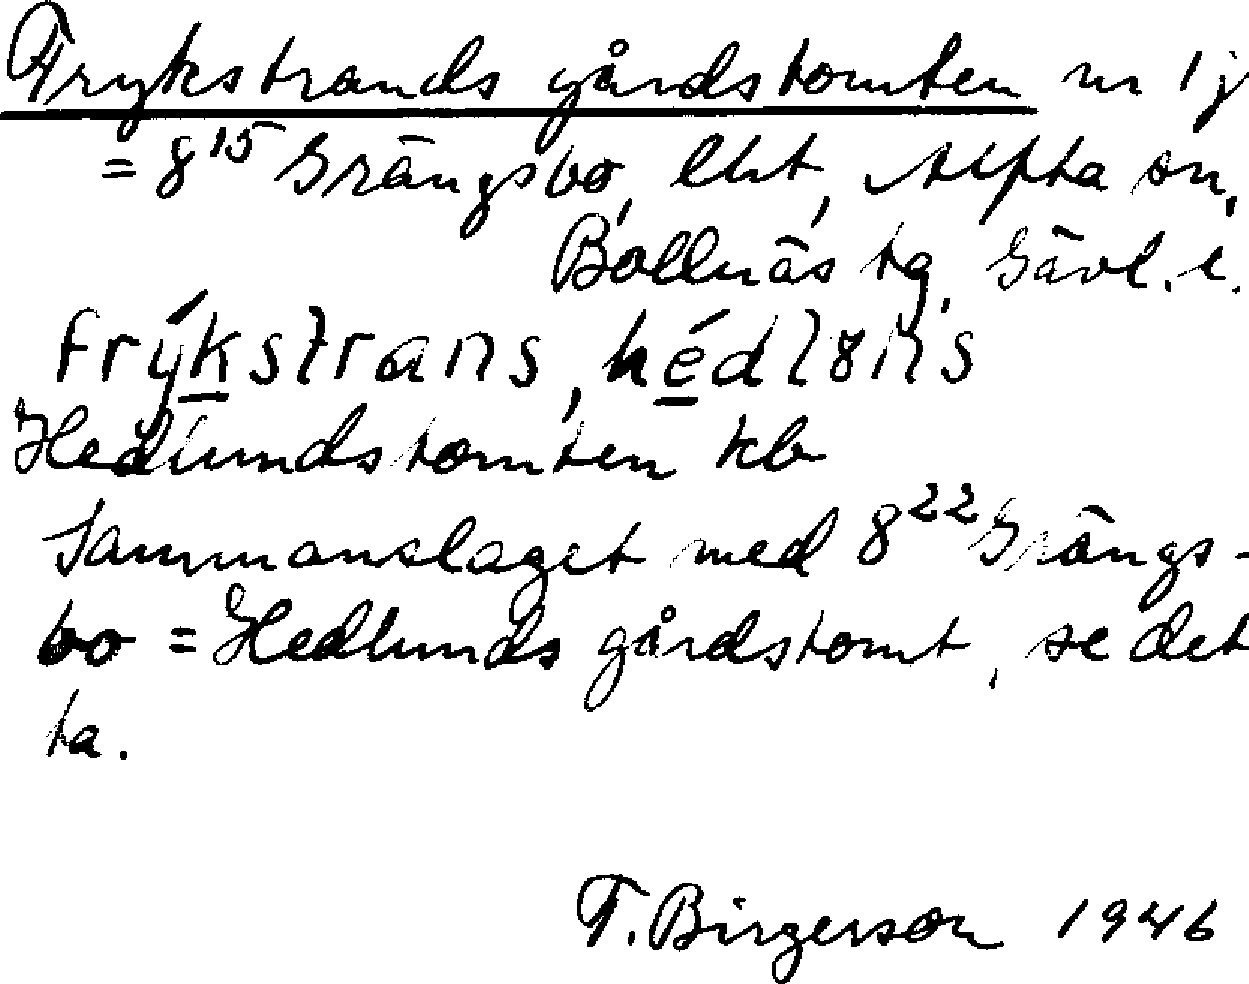 Frykstrands gårdstomten nr 1j
= 8¹⁵ Grängsbo, lht, Alfta sn,
Bollnäs tg, Gävl. l.
Hedlundstomten kb
Sammanslaget med 8²² Grängs-
bo = Hedlunds gårdstomt, se det
ta.
F. Birgerson 1946